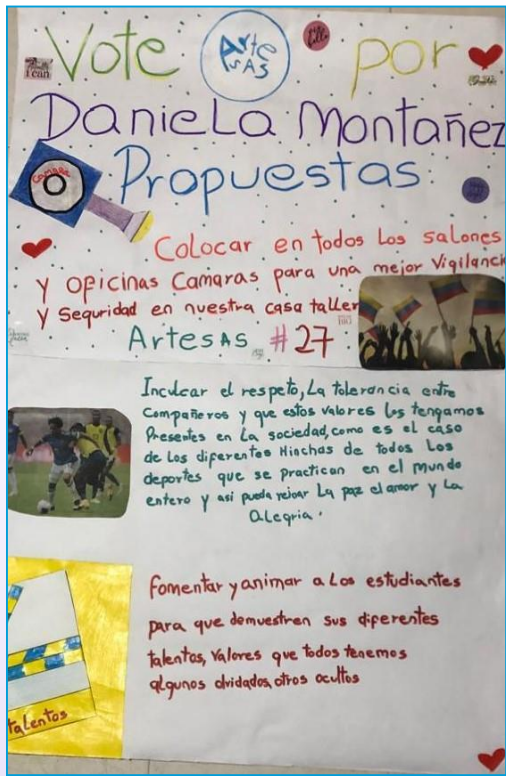 Vote Arte SAS por
Daniela Montañez
Propuestas
Camara
Colocar en todos los salones
y oficinas Camaras para una mejor Vigilanci
y Seguridad en nuestra casa taller
ArtesAS #27
Inculcar el respeto, La tolerancia entre
Compañeros y que estos valores los tengamos
Presentes en La sociedad, como es el caso
de los diferentes Hinchas de todos Los
deportes que se practican en el mundo
entero y asi pueda reinar La paz el amor y La
Alegria.
fomentar y animar a Los estudiantes
para que demuestren sus diferentes
talentos, valores que todos tenemos
algunos olvidados, otros ocultos
talentos